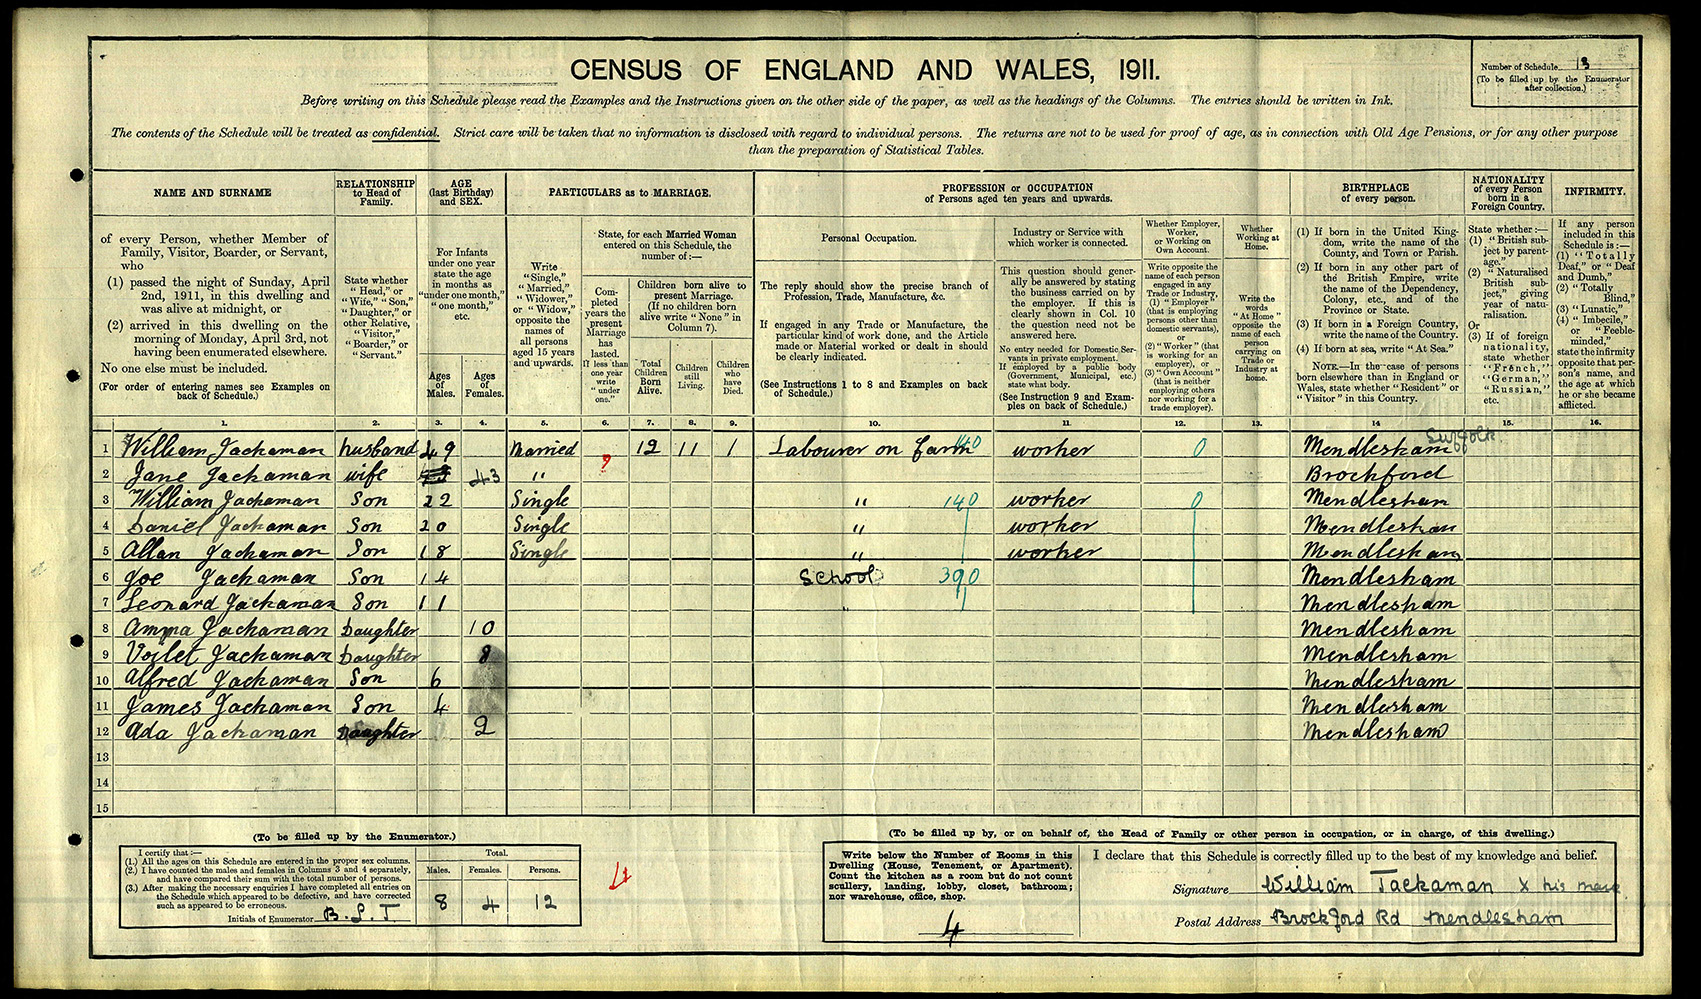 CENSUS OF ENGLAND AND WALES, 1911.
Number of Schedule 13
(To be filled up by the Enumerator
after collection.)
Before writing on this Schedule please read the Examples and the Instructions given on the other side of the paper, as well as the headings of the Columns. The entries should be written in Ink.
The contents of the Schedule will be treated as confidential. Strict care will be taken that no information is disclosed with regard to individual persons. The returns are not to be used for proof of age, as in connection with Old Age Pensions, or for any other purpose
than the preparation of Statistical Tables.
NAME AND SURNAME
of every Person, whether Member of
Family, Visitor, Boarder, or Servant,
who
(1) passed the night of Sunday, April
2nd, 1911, in this dwelling and
was alive at midnight, or
(2) arrived in this dwelling on the
morning of Monday, April 3rd, not
having been enumerated elsewhere.
No one else must be included.
(For order of entering names see Examples on
back of Schedule.)
RELATIONSHIP
to Head of
Family.
State whether
"Head," or
"Wife," "Son,"
"Daughter," or
other Relative,
"Visitor,"
"Boarder," or
"Servant."
AGE
(last Birthday)
and SEX.
For Infants
under one year
state the age
in months as
"under one month,"
"one month,"
etc.
Ages
of
Males.
Ages
of
Females.
PARTICULARS as to MARRIAGE.
Write
"Single,"
"Married,"
"Widower,"
or "Widow,"
opposite the
names of
all persons
aged 15 years
and upwards.
State, for each Married Woman
entered on this Schedule, the
number of:—
Completed
years the
present
Marriage
has
lasted.
If less than
one year
write
"under
one."
Children born alive to
present Marriage.
(If no children born
alive write "None" in
Column 7).
Total
Children
Born
Alive.
Children
still
Living.
Children
who
have
Died.
PROFESSION or OCCUPATION
of Persons aged ten years and upwards.
Personal Occupation.
The reply should show the precise branch of
Profession, Trade, Manufacture, &c.
If engaged in any Trade or Manufacture, the
particular kind of work done, and the Article
made or Material worked or dealt in should
be clearly indicated.
(See Instructions 1 to 8 and Examples on back
of Schedule.)
Industry or Service with
which worker is connected.
This question should gener-
ally be answered by stating
the business carried on by
the employer. If this is
clearly shown in Col. 10
the question need not be
answered here.
No entry needed for Domestic Ser-
vants in private employment.
If employed by a public body
(Government, Municipal, etc.)
state what body.
(See Instruction 9 and Exam-
ples on back of Schedule.)
Whether Employer,
Worker,
or Working on
Own Account.
Write opposite the
name of each person
engaged in any
Trade or Industry,
(1) "Employer"
(that is employing
persons other than
domestic servants),
or
(2) "Worker" (that
is working for an
employer), or
(3) "Own Account"
(that is neither
employing others
nor working for a
trade employer).
Whether
Working at
Home.
Write the
words
"At Home"
opposite the
name of each
person
carrying on
Trade or
Industry at
home.
BIRTHPLACE
of every person.
(1) If born in the United King-
dom, write the name of the
County, and Town or Parish.
(2) If born in any other part of
the British Empire, write
the name of the Dependency,
Colony, etc., and of the
Province or State.
(3) If born in a Foreign Country,
write the name of the Country.
(4) If born at sea, write "At Sea."
NOTE.—In the case of persons
born elsewhere than in England or
Wales, state whether "Resident" or
"Visitor" in this Country.
NATIONALITY
of every Person
born in a
Foreign Country.
State whether:—
(1) "British sub-
ject by parent-
age."
(2) "Naturalised
British sub-
ject," giving
year of natu-
ralisation.
Or
(3) If of foreign
nationality,
state whether
"French,"
"German,"
"Russian,"
etc.
INFIRMITY.
If any person
included in this
Schedule is:—
(1) "Totally
Deaf," or "Deaf
and Dumb,"
(2) "Totally
Blind,"
(3) "Lunatic,"
(4) "Imbecile,"
or "Feeble-
minded,"
state the infirmity
opposite that per-
son's name, and
the age at which
he or she became
afflicted.
1. 2. 3. 4. 5. 6. 7. 8. 9. 10. 11. 12. 13. 14 15. 16.
1 William Jackaman husband 49 Married ? 12 11 1 Labourer on farm 140 worker 0 Mendlesham Suffolk
2 Jane Jackaman wife 43 " Brockford
3 William Jackaman Son 22 Single " 140 worker 0 Mendlesham
4 Daniel Jackaman Son 20 Single " worker Mendlesham
5 Allan Jackaman Son 18 Single " worker Mendlesham
6 Joe Jackaman Son 14 School 390 Mendlesham
7 Leonard Jackaman Son 11 " Mendlesham
8 Amma Jackaman Daughter 10 Mendlesham
9 Voilet Jackaman Daughter 8 Mendlesham
10 Alfred Jackaman Son 6 Mendlesham
11 James Jackaman Son 4 Mendlesham
12 Ada Jackaman Daughter 2 Mendlesham
13
14
15
(To be filled up by the Enumerator.)
I certify that:—
(1.) All the ages on this Schedule are entered in the proper sex columns.
(2.) I have counted the males and females in Columns 3 and 4 separately,
and have compared their sum with the total number of persons.
(3.) After making the necessary enquiries I have completed all entries on
the Schedule which appeared to be defective, and have corrected
such as appeared to be erroneous.
Initials of Enumerator B.L.T.
Total.
Males. Females. Persons.
8 4 12
4
(To be filled up by, or on behalf of, the Head of Family or other person in occupation, or in charge, of this dwelling.)
Write below the Number of Rooms in this
Dwelling (House, Tenement, or Apartment).
Count the kitchen as a room but do not count
scullery, landing, lobby, closet, bathroom;
nor warehouse, office, shop.
4
I declare that this Schedule is correctly filled up to the best of my knowledge and belief.
Signature William Jackaman X his mark
Postal Address Brockford Rd Mendlesham